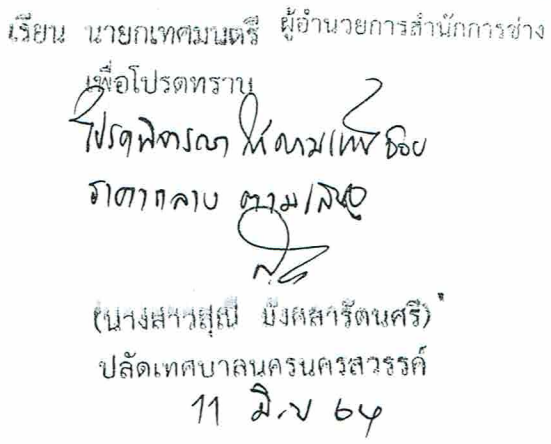 เรียน นายกเทศมนตรี ผู้อำนวยการสำนักการช่าง
เพื่อโปรดทราบ
โปรดพิจารณาให้ความเห็นชอบ
ราคากลาง ตามเสนอ
(นางสาวสุณี
ปลัดเทศบาลนครนครสวรรค์
11 มิ.ย 64